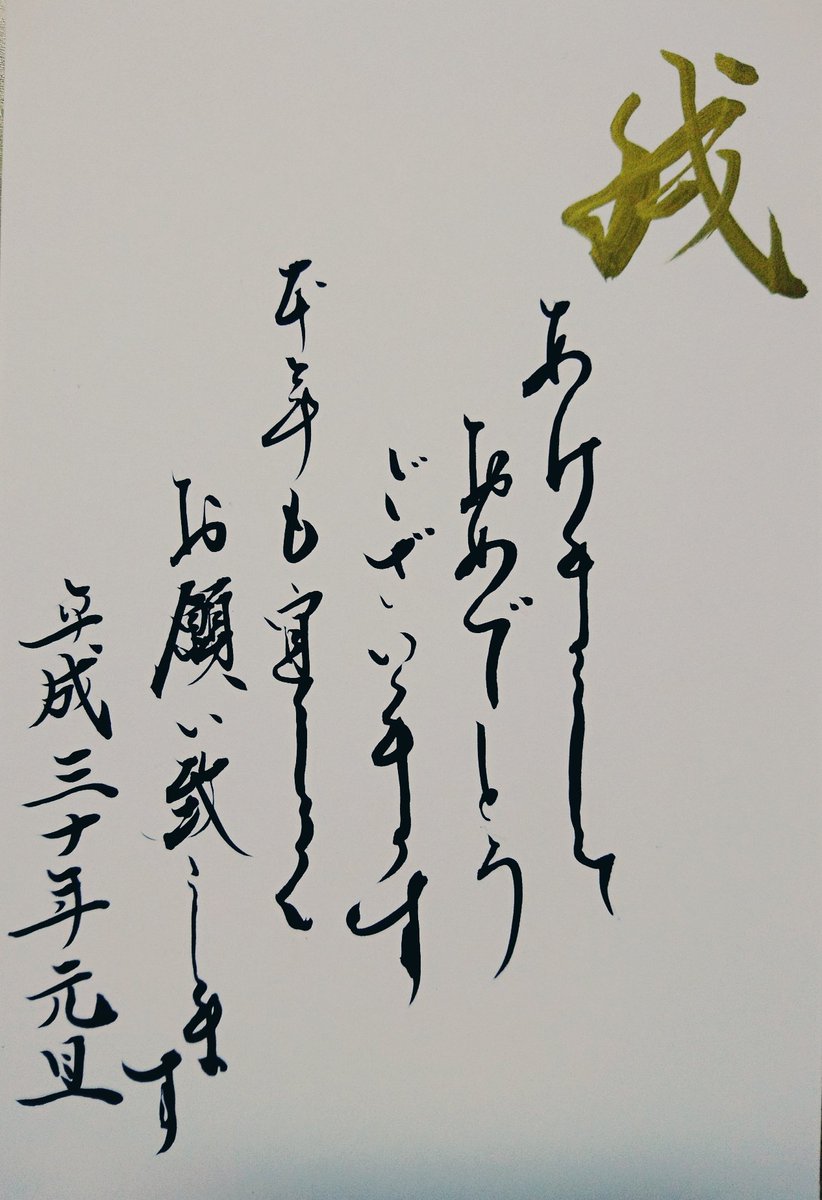 あけまして
おめでとう
ございます
本年も宜しく
お願い致します
平成三十年元旦